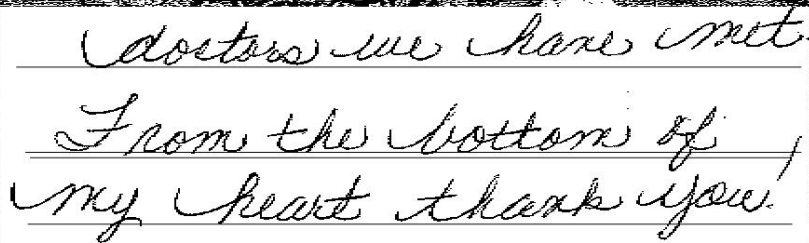 doctors we have met.
From the bottom of
my heart thank you!